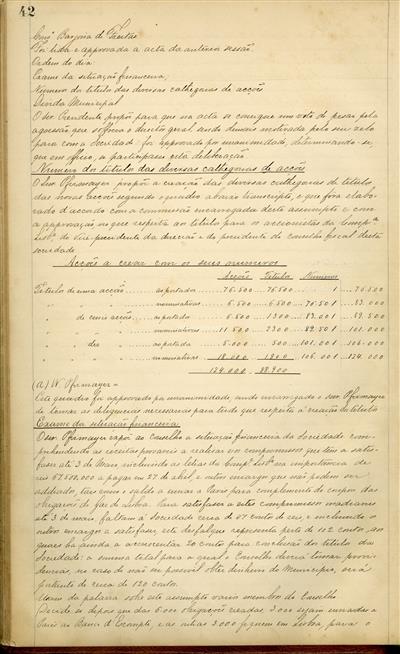 42
Luiz Barjona de Freitas
Foi lida e approvada a acta da anterior sessão.
Ordem do dia:
Exame da situação financeira;
Numero de titulos das diversas cathegorias de acções
Divida Municipal
O Snr. Presidente propõe para que na acta se consigne um voto de pesar pela
agressão que soffreu o director geral, ainda demais motivada pelo seu zelo
para com a Sociedade: foi approvada por unanimidade, determinando-se
que em officio, se participasse esta deliberação
Numero dos titulos das diversas cathegorias de acções
O Snr. Pfirmayer propõe a creação das diversas cathegorias de titulos
das novas acções segundo o quadro abaixo transcripto, e que fora elabo-
rado d'accordo com a commissão encarregada deste assumpto e com
a approvação no que respeita ao titulo para os accionistas da Comp.ª
Lisb.e, do Vice-presidente da direcção e do presidente do conselho fiscal desta
sociedade
Acções a crear com os seus numeros
Acções Titulos Numeros
Titulos de uma acção as portador 76.500 76.500 1 76.500
" " " " nominativas 6.500 6.500 76.501 83.000
" de cinco acções as portador 6.500 1300 83.001 89.500
" " " " nominativas 11.500 2300 89.501 101.000
" " dez " as portador 5.000 500 101.001 106.000
" " " " nominativas 18.000 1.800 106.001 124.000
124.000 88.900
(a) W. Pfirmayer =
Este quadro foi approvado por unanimidade, sendo encarregado o snr. Pfirmayer
de tomar as deligencias necessarias para tudo que respeita á creação dos titulos
Exame da situação financeira
O Snr. Pfirmayer expoz ao Conselho a situação financeira da Sociedade com-
prehendendo as receitas provaveis a realisar e os compromissos que tem a satis-
fazer até 3 de Maio, incluindo as letras da Comp.ª Lisb.e na importancia de
reis 67.500,000 a pagar em 27 de abril, e outros encargos que não podem ser
addiados, taes como o saldo a enviar a Paris para complemento do coupon das
obrigações do gaz de Lisboa. Para satisfazer a estes compromissos inadiaveis
até 3 de maio, faltam á Sociedade cerca de 67 contos de reis, e incluindo os
outros encargos a satisfazer, este desfalque representa perto de 102 contos, aos
quaes ha ainda a accrescentar 20 contos para conclusão dos titulos da
Sociedade: a somma total para a qual o Conselho deverá tomar provi-
dencias, no caso de não ser possivel obter dinheiro do Municipio, será
portanto de cerca de 120 contos.
Usam da palavra sobre este assumpto varios membros do Conselho
Decide-se depois que das 6.000 obrigações creadas, 3.000 sejam enviadas a
Paris ao Banco d'Escompte, e as outras 3.000 fiquem em Lisboa, para o